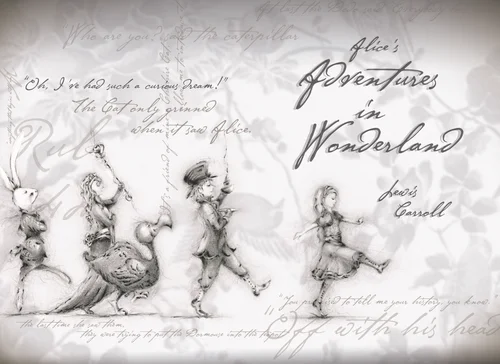 Who are you? said the caterpillar
"Oh, I've had such a curious dream!"
The Cat only grinned
when it saw Alice.
Alice's
Adventures
in
Wonderland
Lewis
Carroll
"You promised to tell me your history, you know.
the last time she saw them,
they were trying to put the Dormouse into the teapot
Off with his head